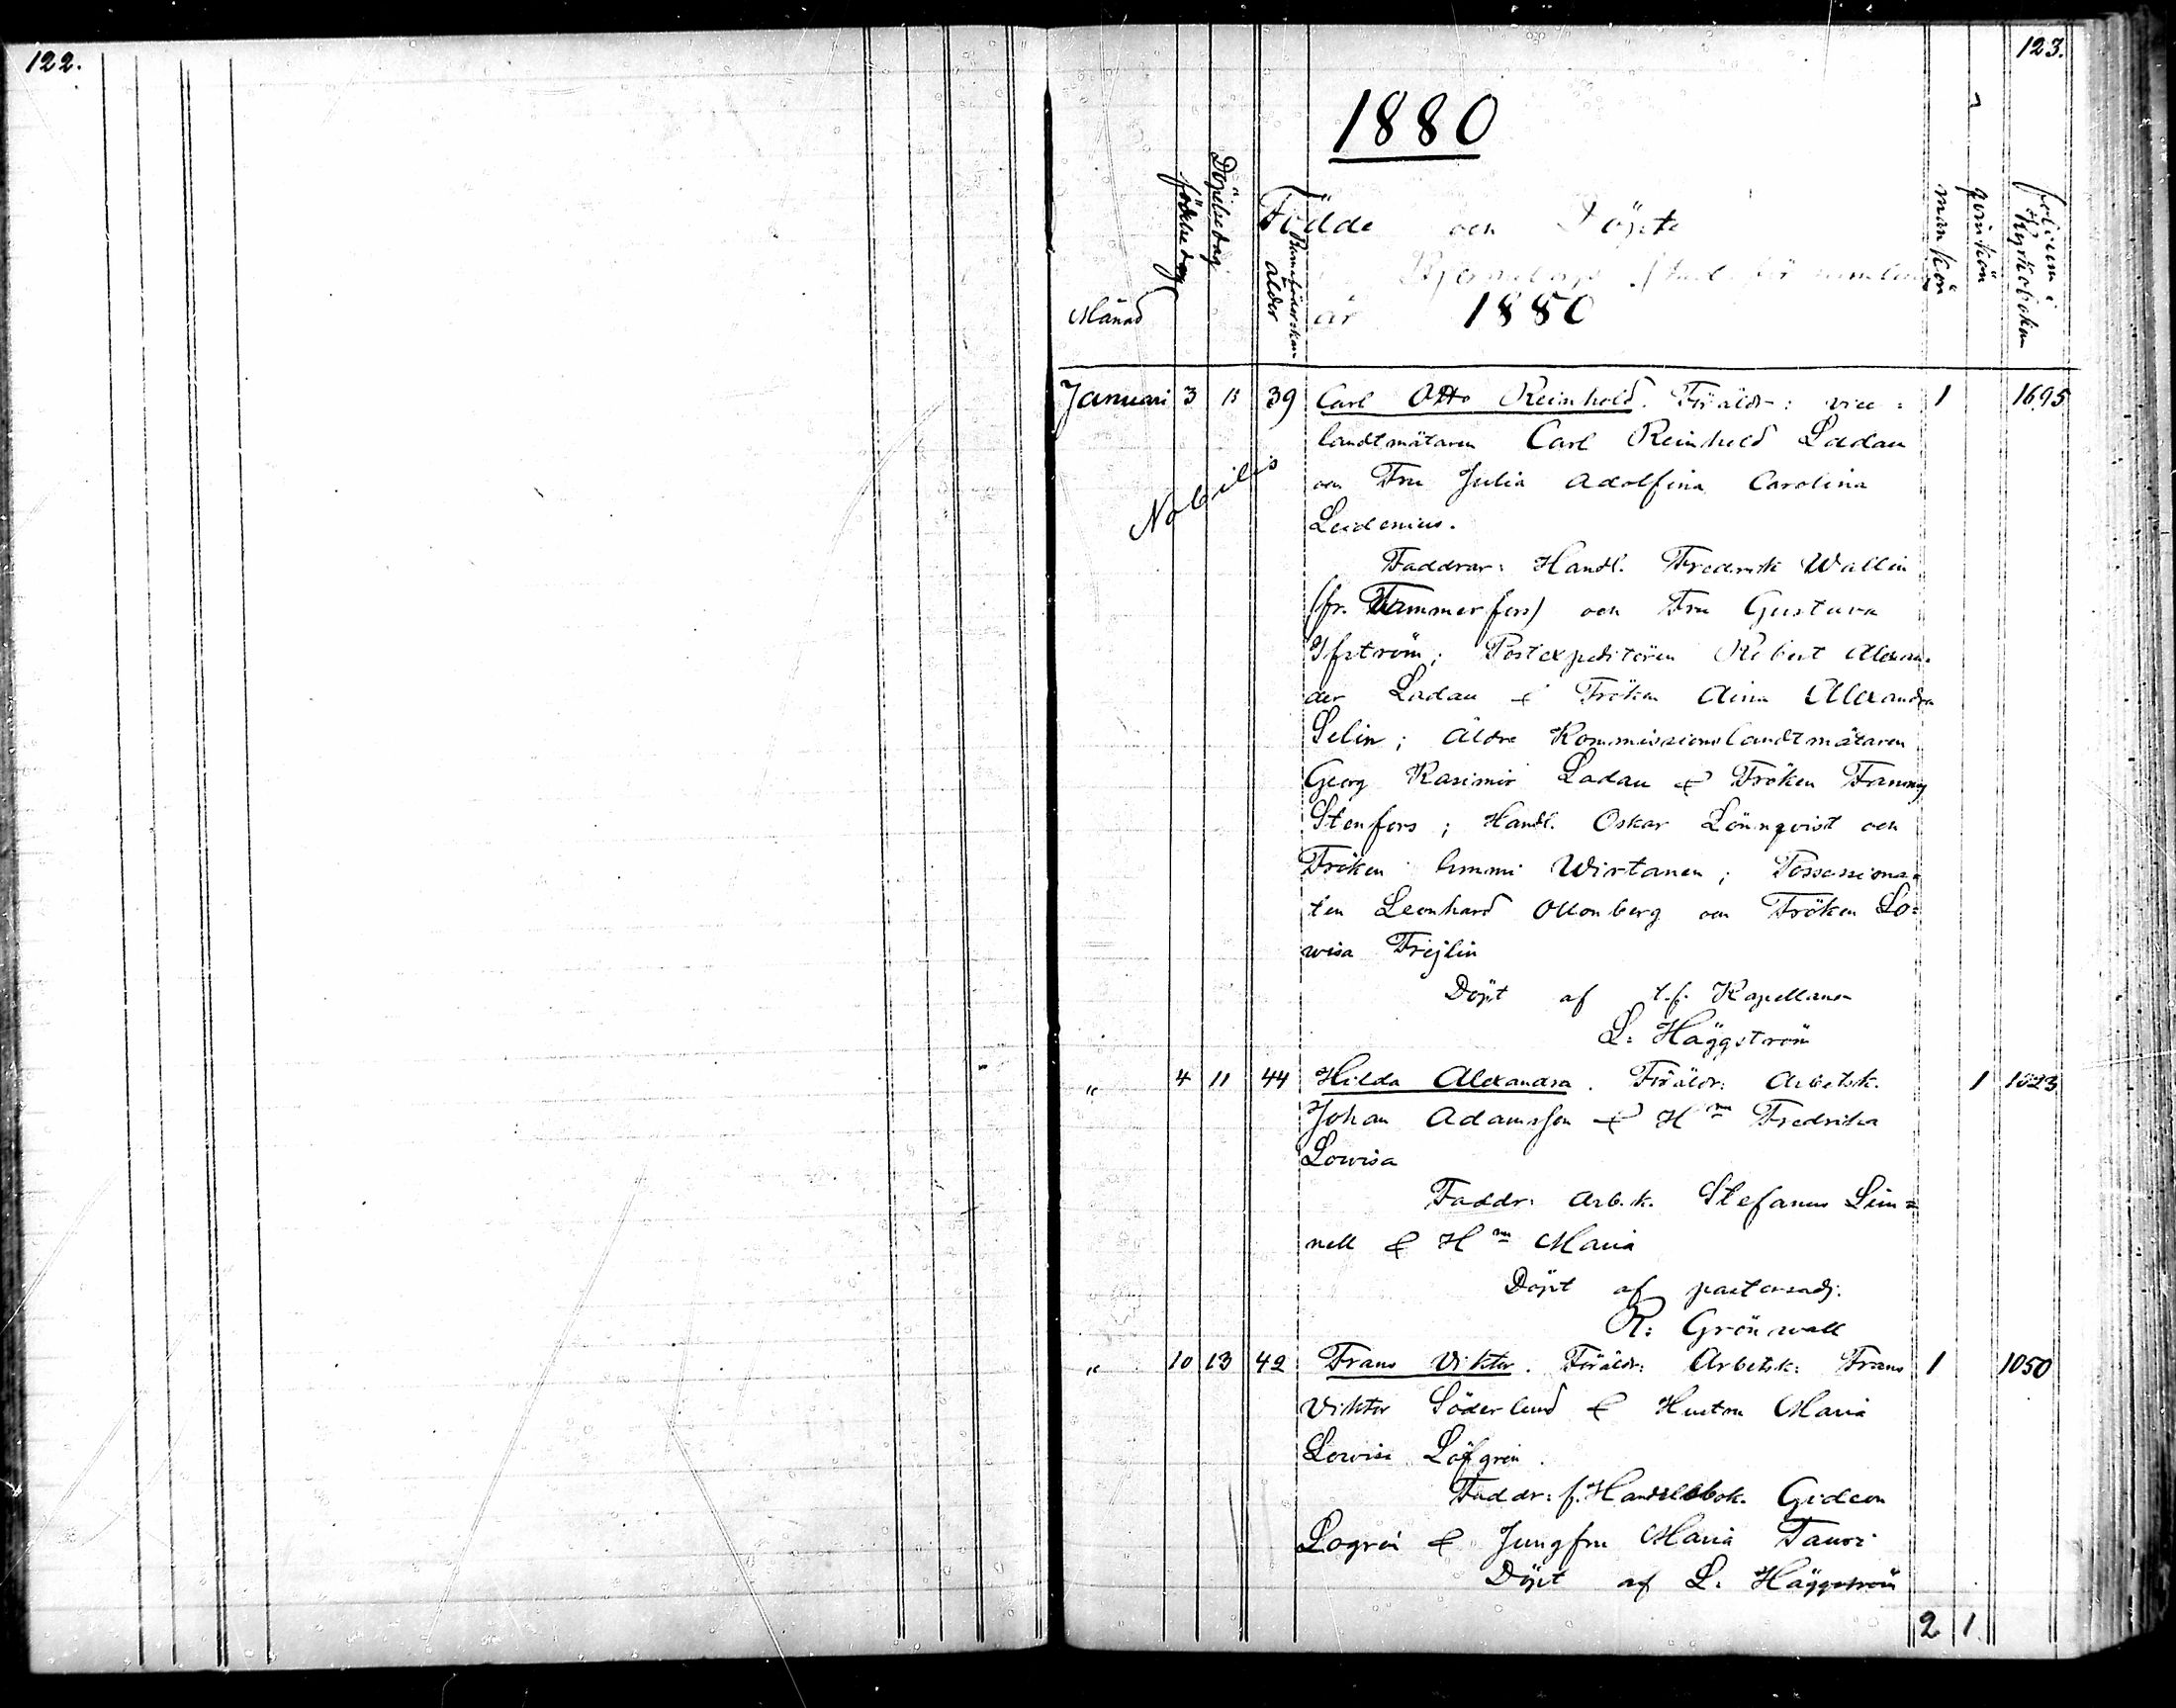 122.
123.
1880
Födde och Döpte
Björneborgs Stads församling
år 1880
Månad
födelsedag
Döpelsedag
Barnaföderskans ålder
mankön
qvinkön
folium i Kyrkoboken
Januari 3 13 39 Carl Otto Reinhold. Föräldr: vice= 1 1695
landtmätaren Carl Reinhold Ladau
Nobilis
och Fru Julia Adolfina Carolina
Leidenius.
Faddrar: Handl. Fredrik Wallin
(fr. Tammerfors) och Fru Gustava
Ifström; Postexpeditören Robert Alexan-
der Ladau & Fröken Aina Alexandra
Selin; äldre Kommissionslandtmätaren
Georg Kasimir Ladau & Fröken Fanny
Stenfors; Handl. Oskar Lönnqvist och
Fröken Emmi Wirtanen; Possessiona-
ten Leonhard Ollonberg och Fröken Lo=
wisa Frejlin
Döpt af t.f. Kapellanen
L. Häggström
" 4 11 44 Hilda Alexandra. Föräldr: Arbetsk. 1 1023
Johan Adamsson & Hm Fredrika
Lowisa
Faddr: Arb.k. Stefanus Lin=
nell & Hm Maria
Döpt af pastorsadj.
R. Grönwall
" 10 13 42 Frans Viktor. Föräldr: Arbetsk: Frans 1 1050
Viktor Söderlund & Hustru Maria
Lowisa Löfgren.
Faddr: f. Handelsbok. Gideon
Logrén & Jungfru Maria Tauri
Döpt af L. Häggström
2 1